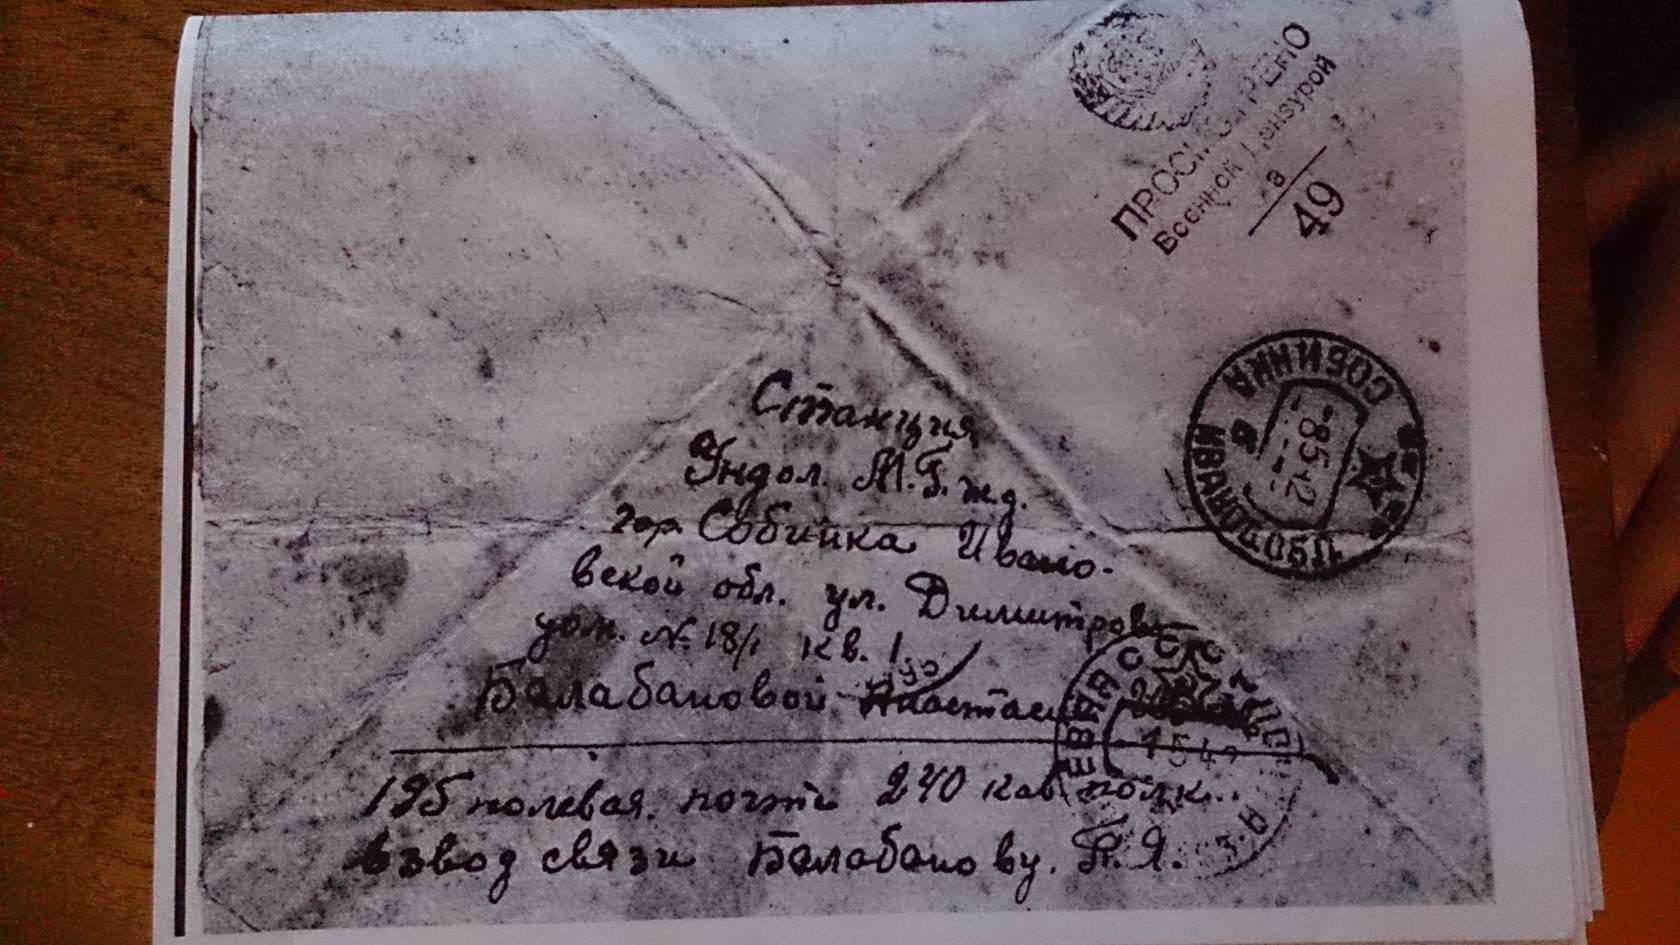 ПРОСМОТРЕНО
Военной Цензурой
а
49
СОБИНКА
-8 5 42
ИВАНОВ.ОБЛ.
Станция
Ундол. М.Г.ж.д.
гор. Собинка Ивано-
вской обл. ул. Димитрова
дом. № 18/1 кв. 1
Балабановой
195 полевая. почта 240 кав полк.
взвод связи Балабанову. П. Я.
ЕВАЯ